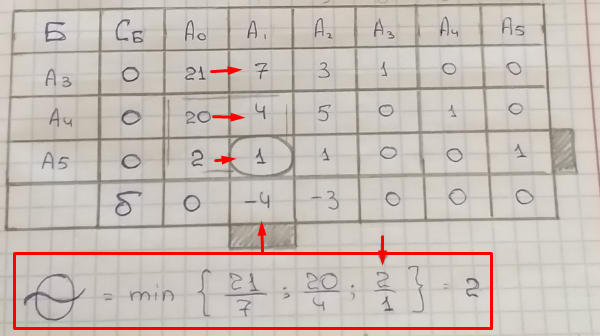 Б Cб A0 A1 A2 A3 A4 A5
A3 0 21 7 3 1 0 0
A4 0 20 4 5 0 1 0
A5 0 2 1 1 0 0 1
б 0 -4 -3 0 0 0
= min { 21/7 ; 20/4 ; 2/1 } = 2